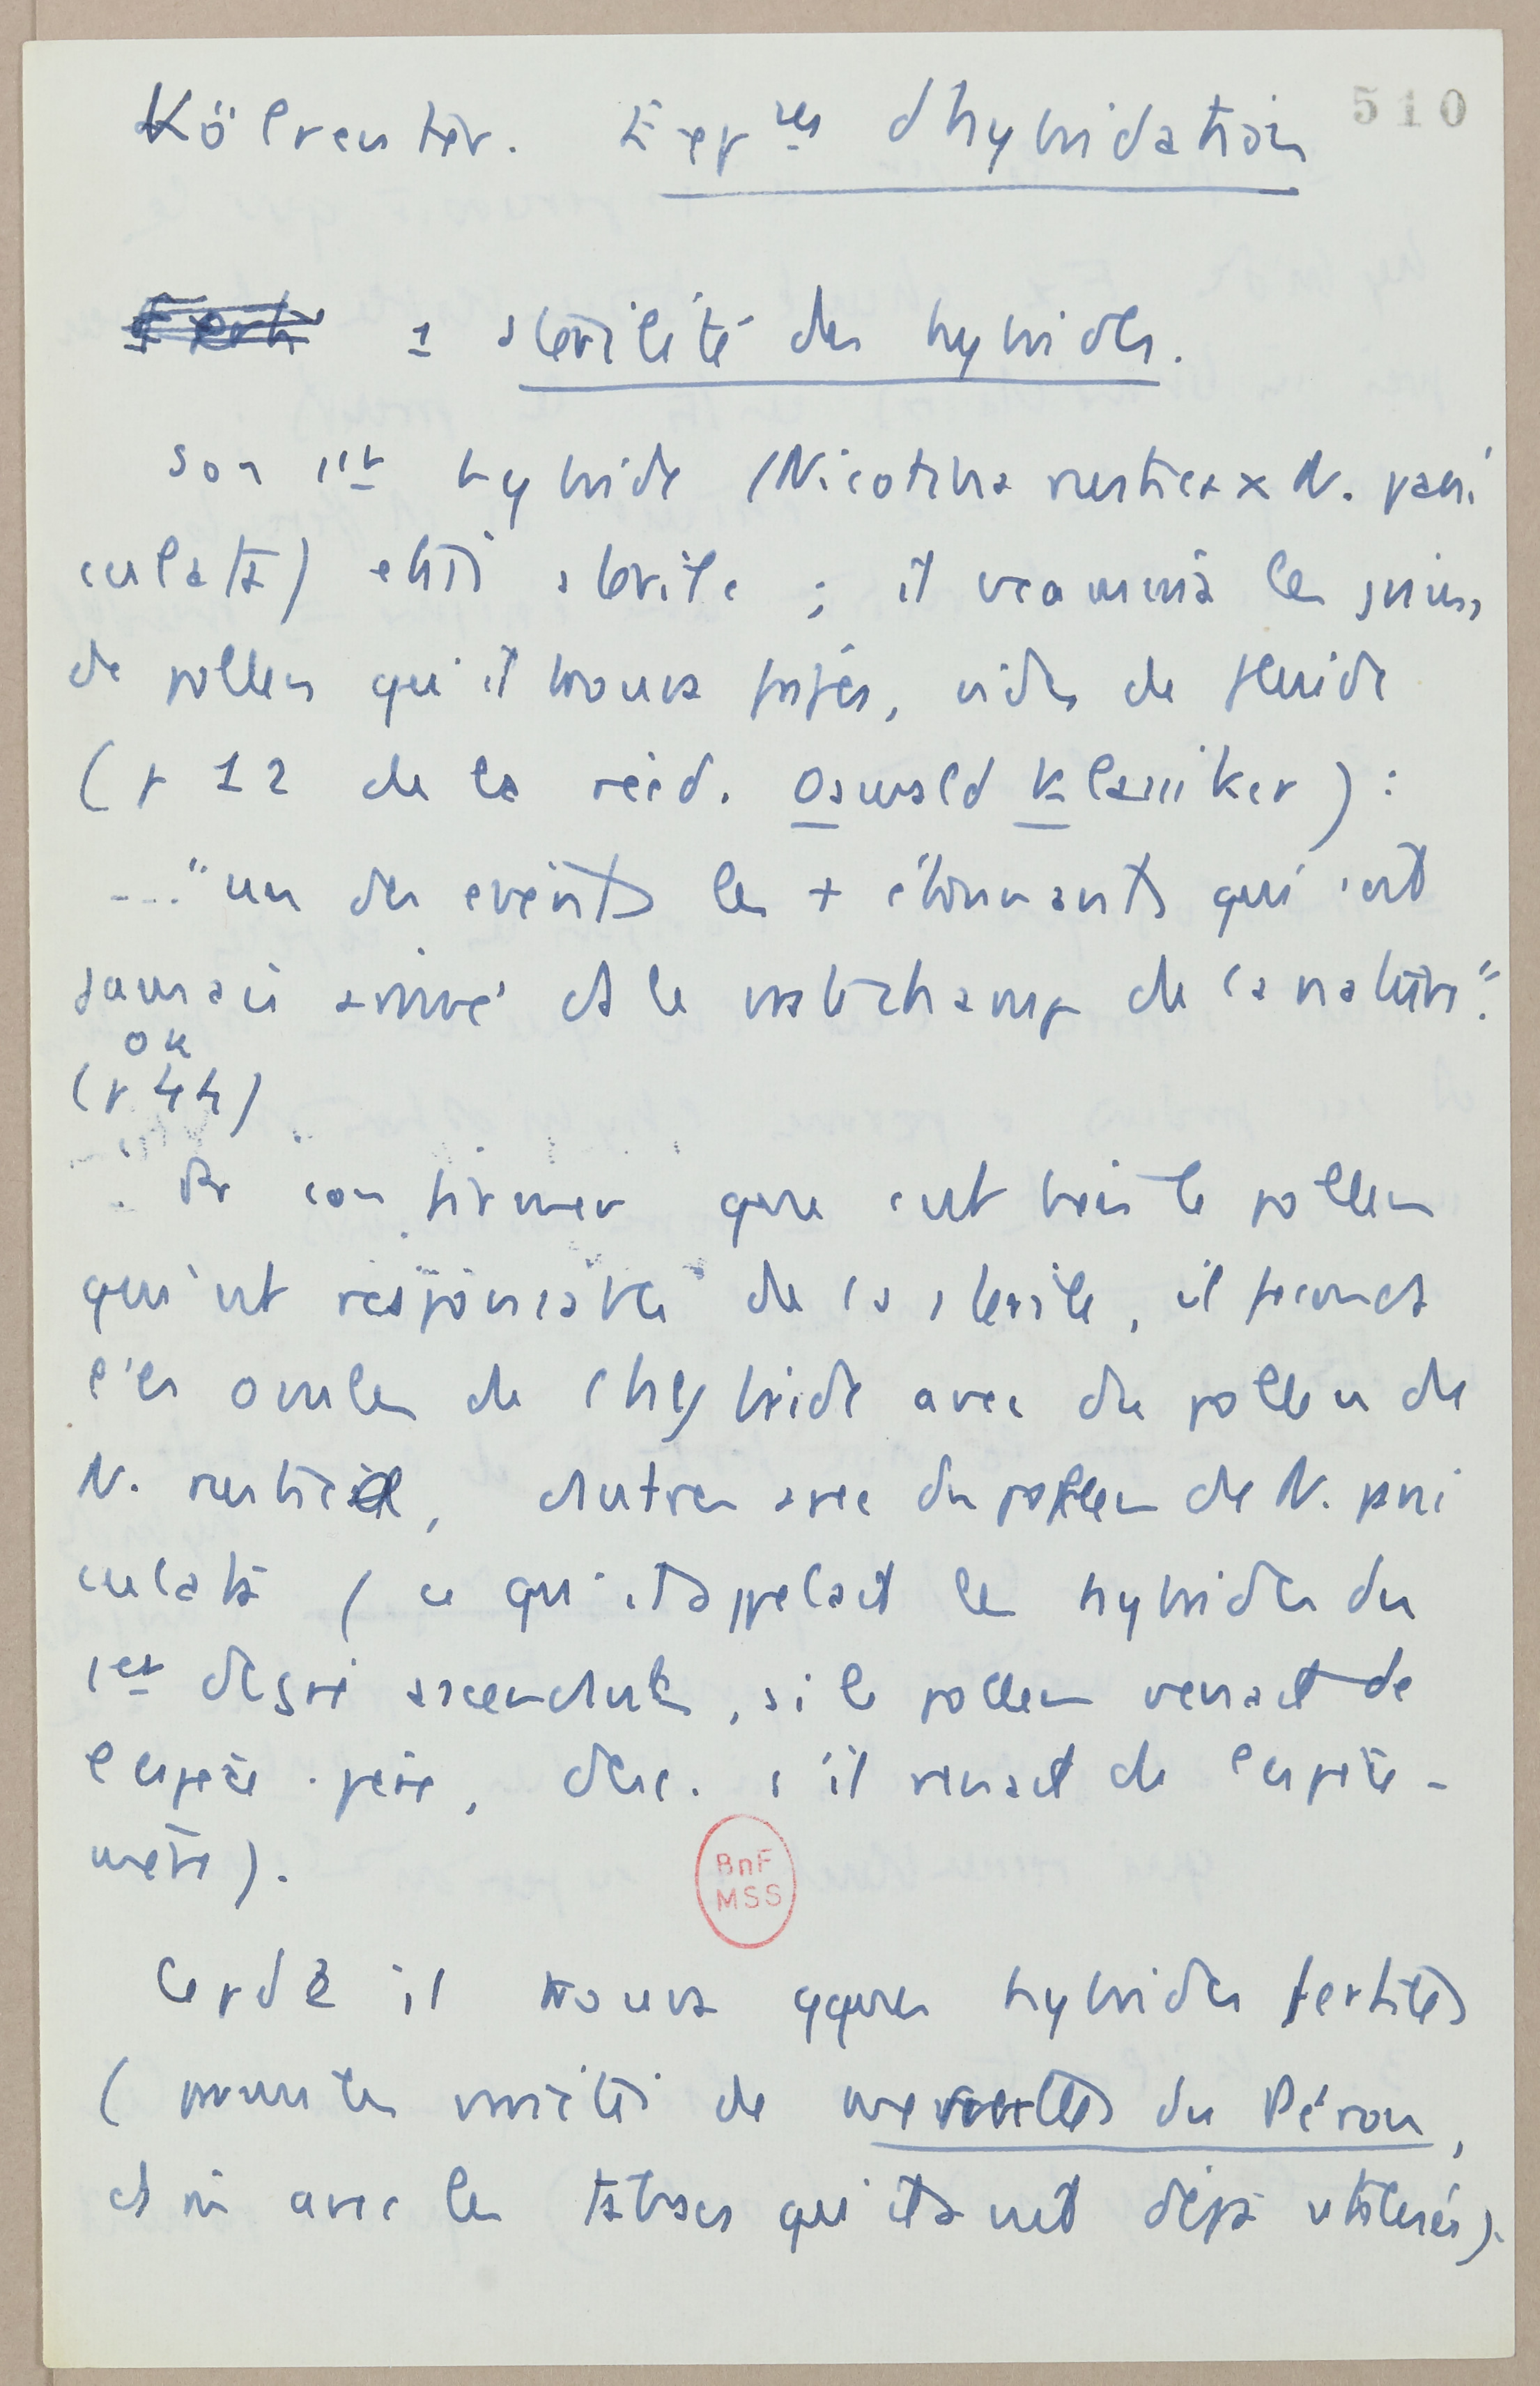 Kölreuter. Expces d'hybridation 510
1 stérilité des hybrides.
Son 1er hybride (Nicotina rustica x N. pani
culata) était stérile ; il examina les grains
de pollen qu'il trouva fripés, vides de fluide
(p 12 de la rééd. Oswald Klassiker) :
..."un des evénts les + étonnants qui soit
jamais arrivé ds le vaste champ de la nature".
OK
(p 44)
Pr confirmer que c'est bien le pollen
qui est responsable de la stérilé, il féconda
les ovules de l'hybride avec du pollen de
N. rustica, d'autres avec du pollen de N. pani
culata (ce qu'il appelait les hybrides du
1er degré ascendants, si le pollen venait de
l'espèce-père, desc. s'il venait de l'espèce-
mère).
Cepdt il trouva qques hybrides fertiles
(prnt les variétés de merveilles du Pérou,
et ni avec les tabacs qu'il avait déjà utilisés).
BnF
MSS